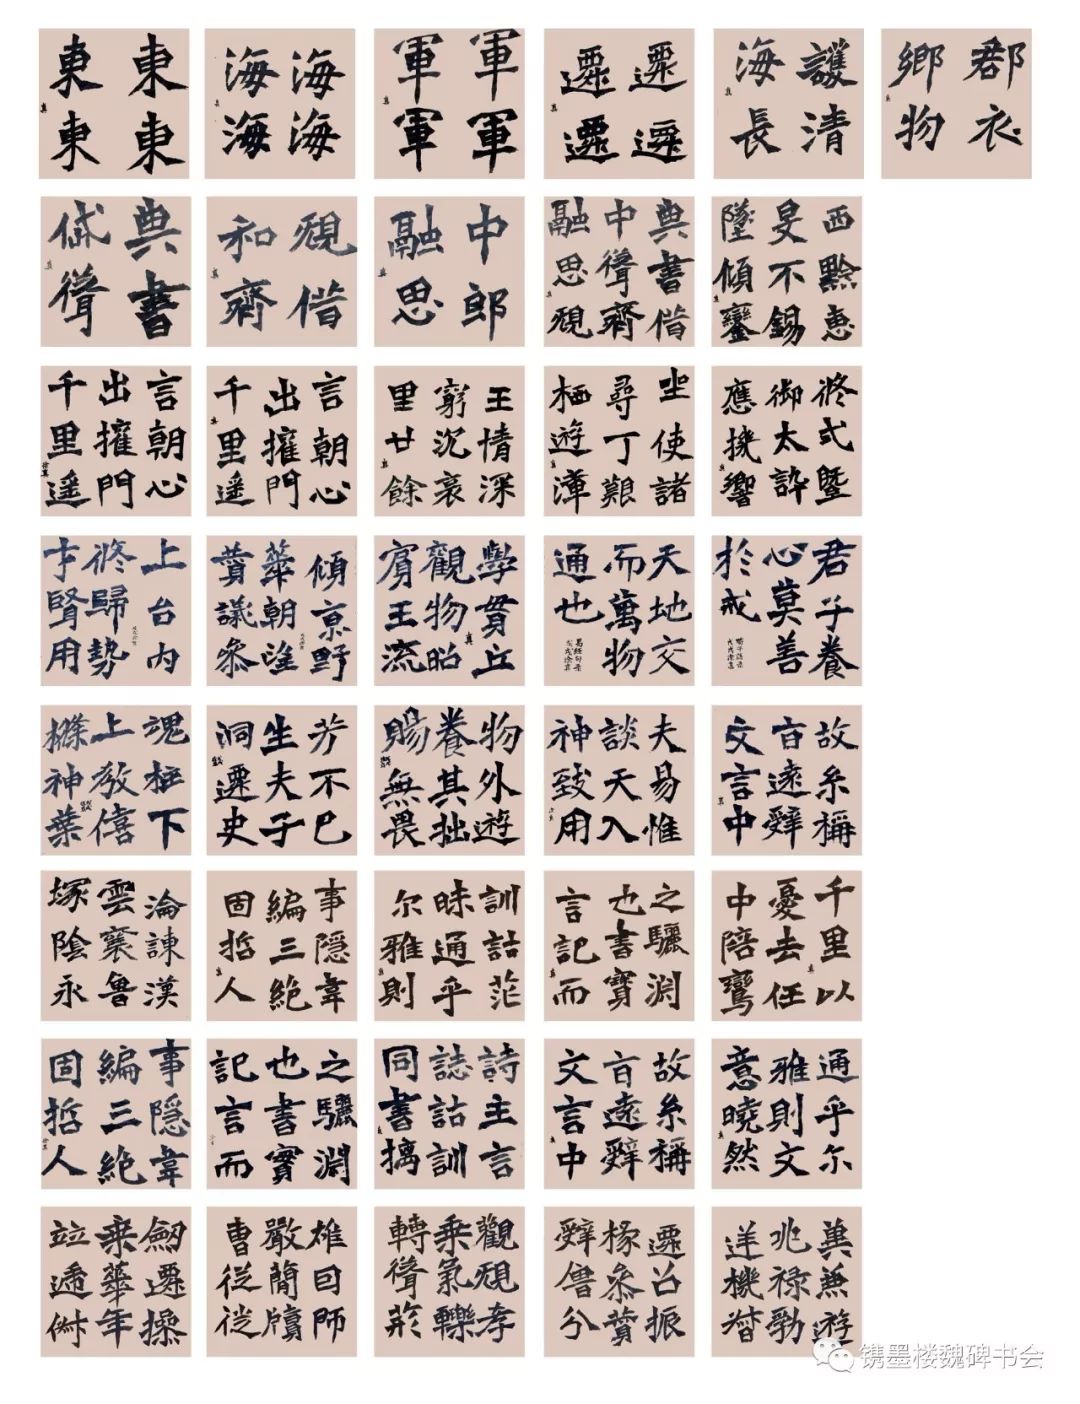 東東
東東
海海
海海
軍軍
軍軍
遷遷
遷遷
護清
海長
郡衣
鄉物
典書
聳
視借
和齊
中郎
融思
典書借
中聳齊
融思視
西黔惠
旻不錫
墜傾鑾
言朝心
出擁門
千里遥
言朝心
出擁門
千里遥
王情深
窮沉哀
里廿餘
坐使諸
尋丁艱
栖遊潭
修弍暨
御太
應機響
上台內
修歸勢
才賢用
傾京野
華朝望
贊議參
學貫丘
觀物昭
賓王流
天地交
而萬物
通也
君子養
心莫善
於戒
魂柱下
上教僖
神葉
芳不已
生夫子
洞遷史
物外遊
養其拙
賜無畏
夫易惟
談天入
神致用
故糸稱
百遠辭
文言中
淪諫漢
雲襄魯
塚陰永
事隱韋
編三絶
固哲人
訓詁茫
昧通乎
尔雅則
之驪淵
也書寶
言記而
千里以
憂去任
中陪鸞
事隱韋
編三絶
固哲人
之驪淵
也書實
記言而
詩主言
誌詁訓
同書摛
故糸稱
旨遠辭
文言中
通乎尔
雅則文
意曉然
劒遷操
乗華年
竝遞
雄曰師
嚴簡牘
曹從
觀視孝
乗氣轢
轉聳
遷召振
椽參贊
辭曾分
兼遊
兆禄勃
機
镌墨楼魏碑书会